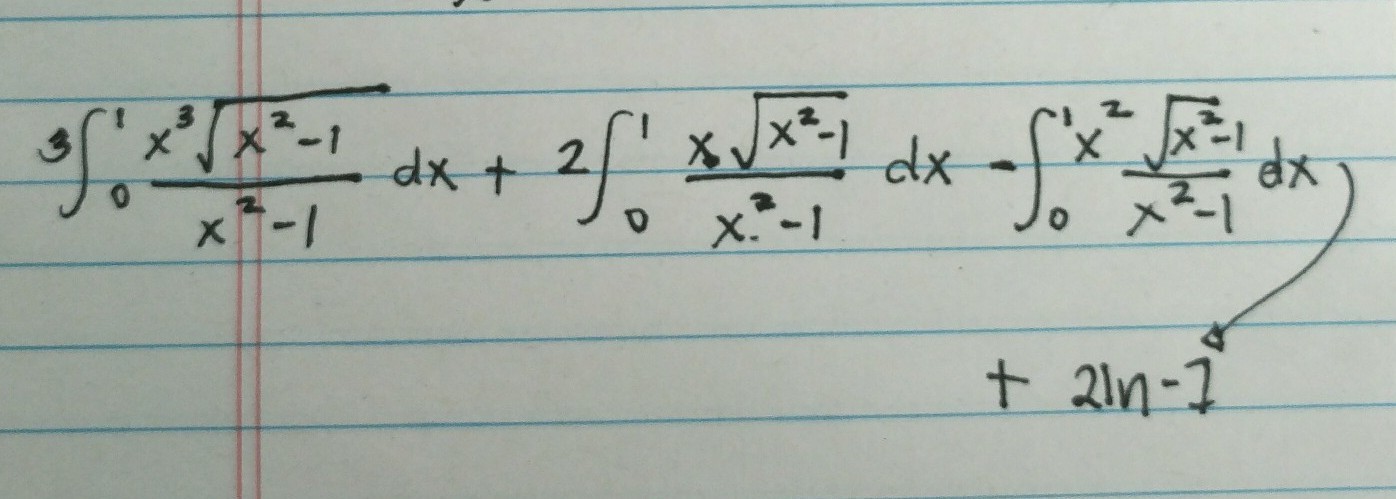 3∫₀¹ x³√(x²-1) / (x²-1) dx + 2∫₀¹ x√(x²-1) / (x²-1) dx - ∫₀¹ x² √(x²-1) / (x²-1) dx
+ 2ln-7